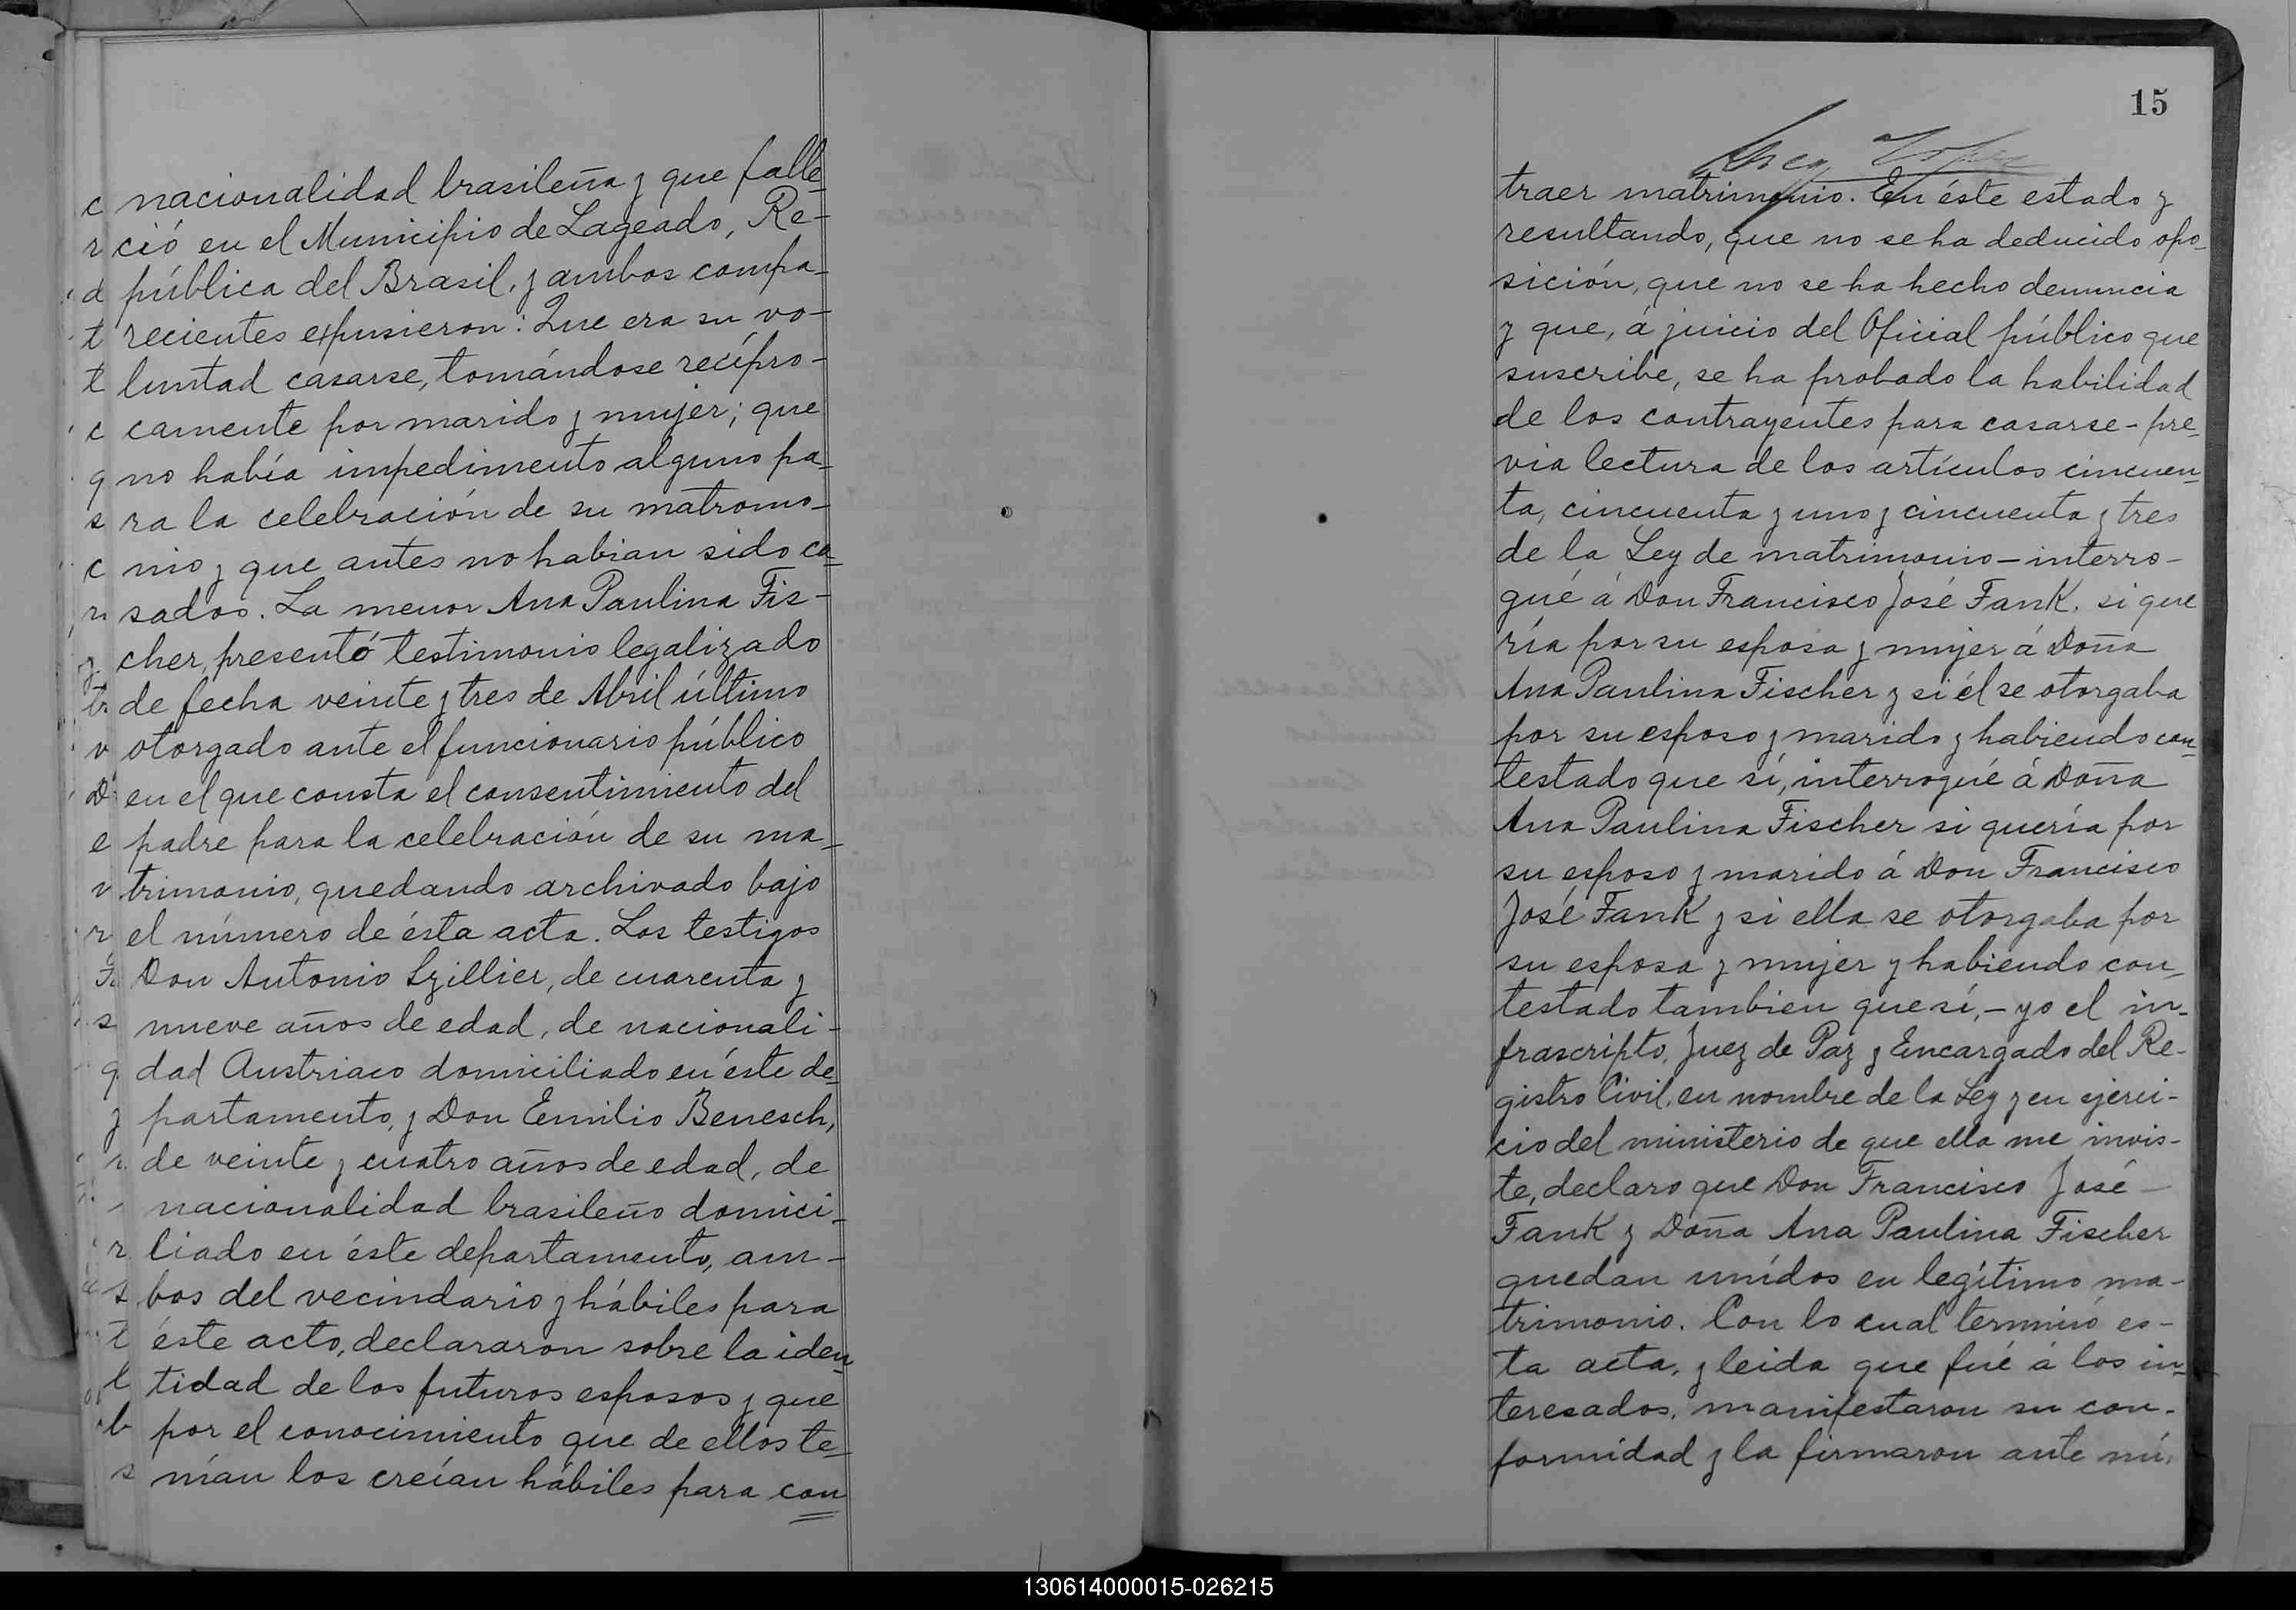 nacionalidad brasileña y que falle-
ció en el Municipio de Lageado, Re-
pública del Brasil, y ambos compa-
recientes expusieron: Que era su vo-
luntad casarse, tomándose recípro-
camente por marido y mujer; que
no había impedimento alguno pa-
ra la celebración de su matromo-
nio y que antes no habian sido ca-
sados. La menor Ana Paulina Fis-
cher, presentó testimonio legalizado
de fecha veinte y tres de Abril último
otorgado ante el funcionario público
en el que consta el consentimiento del
padre para la celebración de su ma-
trimonio, quedando archivado bajo
el número de ésta acta. Los testigos
Don Antonio Szillier, de cuarenta y
nueve años de edad, de nacionali-
dad Austriaco domiciliado en éste de-
partamento, y Don Emilio Benesch,
de veinte y cuatro años de edad, de
nacionalidad brasileño domici-
liado en éste departamento, am-
bos del vecindario y hábiles para
éste acto, declararon sobre la iden-
tidad de los futuros esposos y que
por el conocimiento que de ellos te-
nían los creían hábiles para con
15
traer matrimonio. En éste estado y
resultando, que no se ha deducido opo-
sición, que no se ha hecho denuncia
y que, á juicio del Oficial público que
suscribe, se ha probado la habilidad
de los contrayentes para casarse - pre-
via lectura de los artículos cincuen-
ta, cincuenta y uno y cincuenta y tres
de la Ley de matrimonio - interro-
gué á Don Francisco José Fank, si que
ría por su esposa y mujer á Doña
Ana Paulina Fischer y si él se otorgaba
por su esposo y marido y habiendo con-
testado que sí, interrogué á Doña
Ana Paulina Fischer si quería por
su esposo y marido á Don Francisco
José Fank y si ella se otorgaba por
su esposa y mujer y habiendo con-
testado tambien que sí, - yo el in-
frascripto, Juez de Paz y Encargado del Re-
gistro Civil, en nombre de la Ley y en ejerci-
cio del ministerio de que ella me invis-
te, declaro que Don Francisco José -
Fank y Doña Ana Paulina Fischer
quedan unídos en legítimo ma-
trimonio. Con lo cual terminó es-
ta acta, y leida que fué á los in-
teresados, manifestaron su con-
formidad y la firmaron ante mí,
130614000015-026215